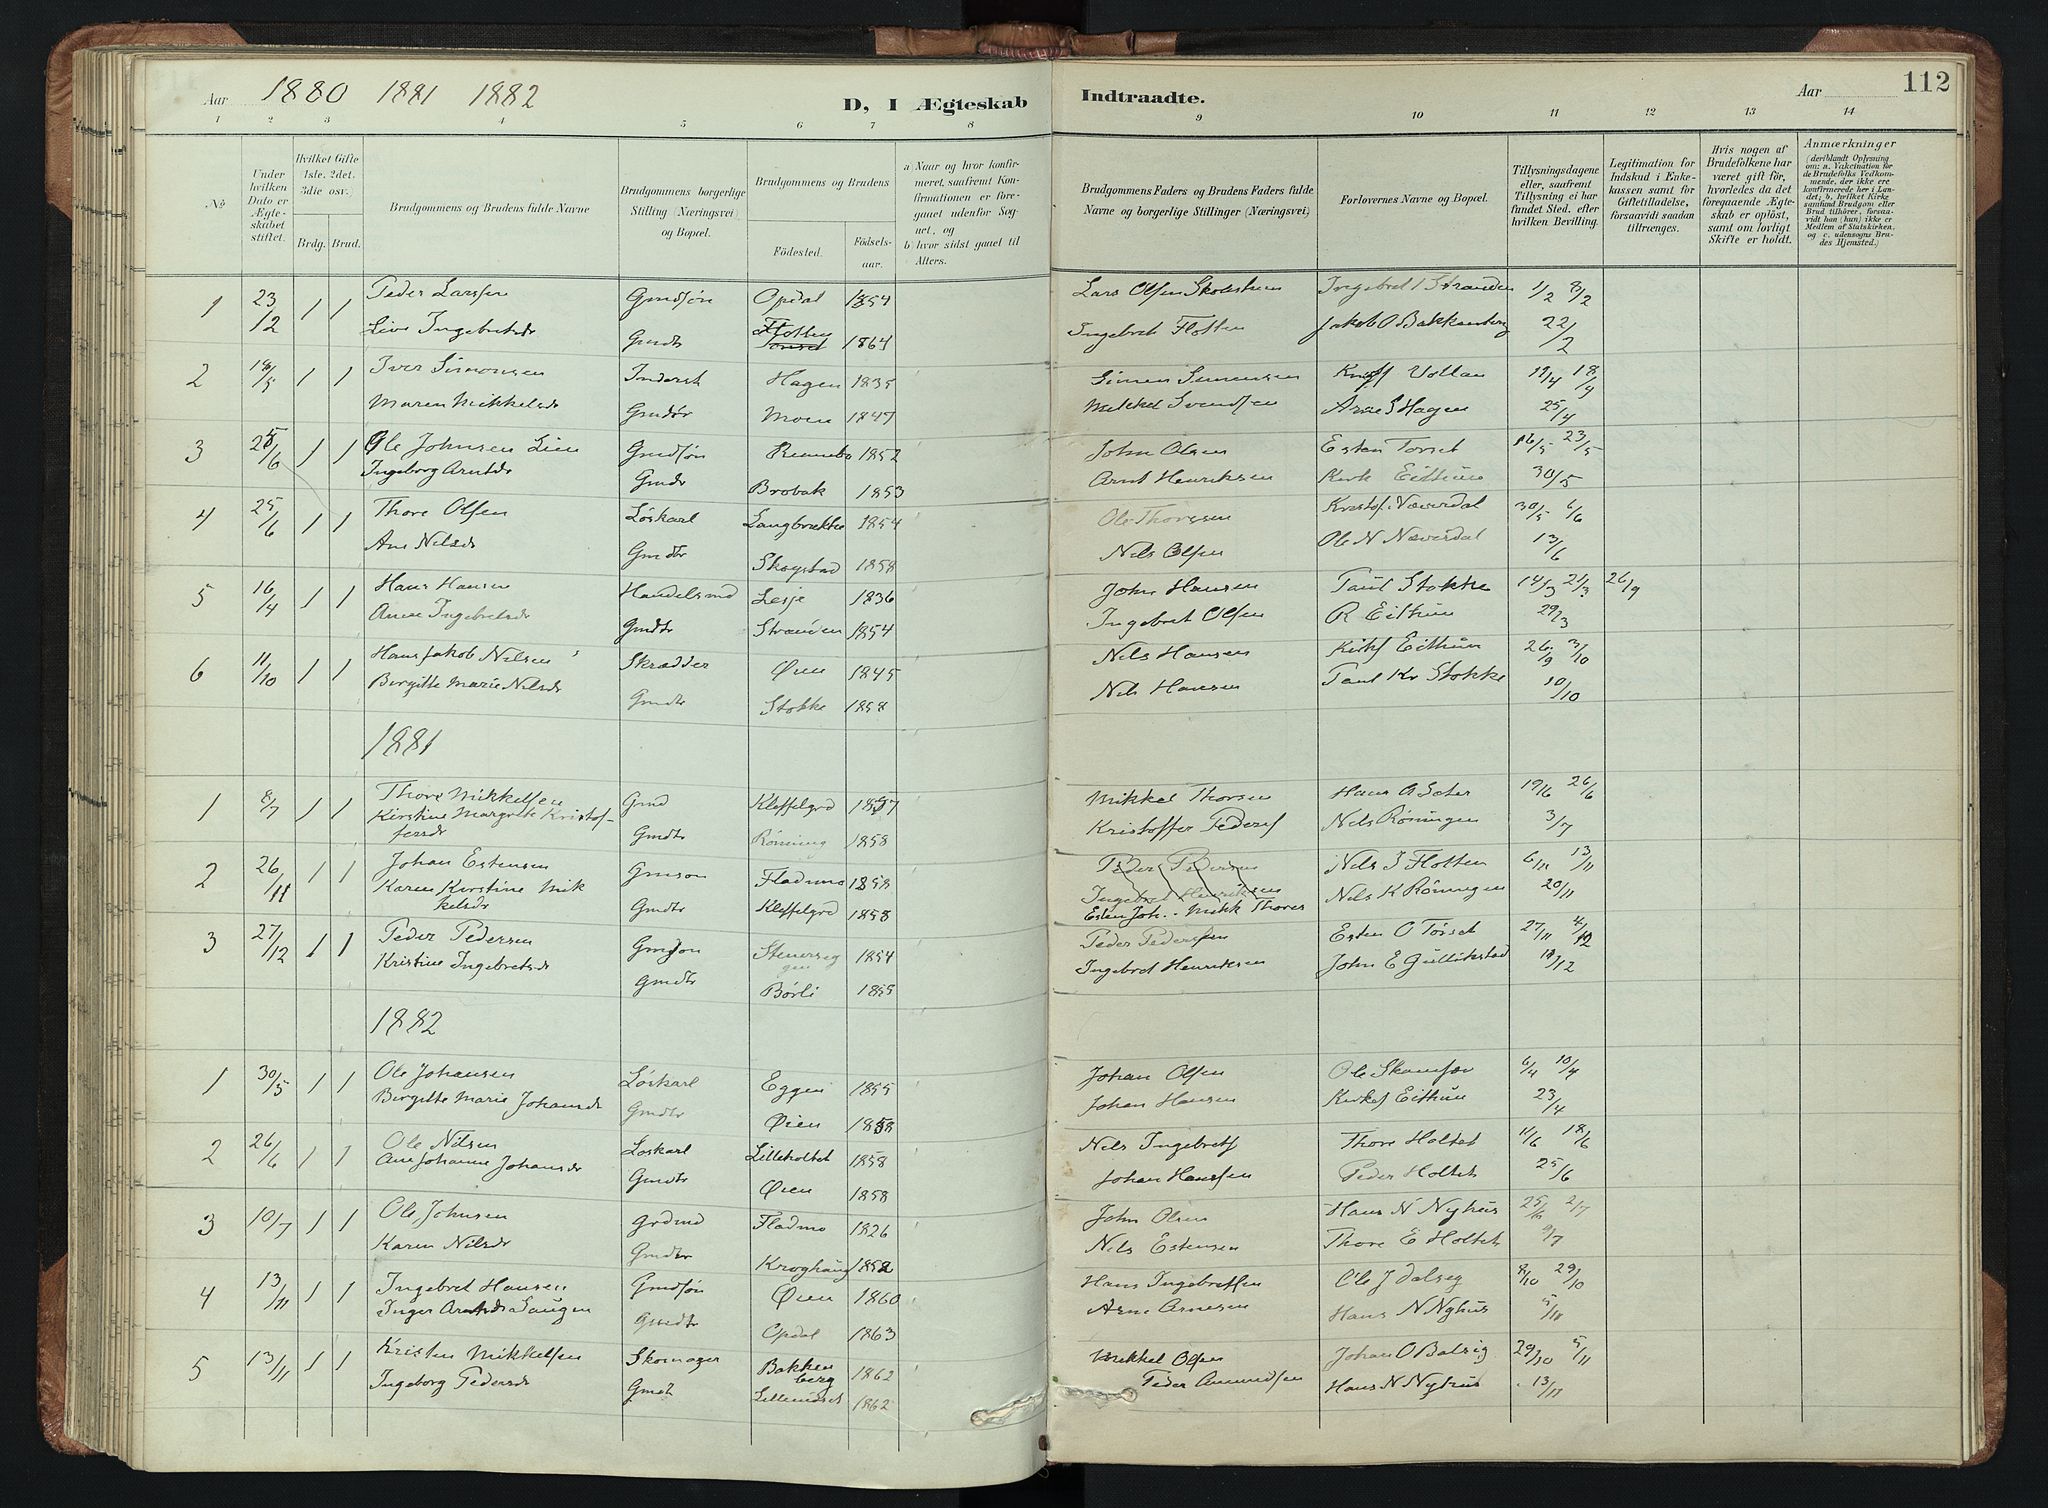 Aar 1880 1881 1882
D, I Ægteskab Indtraadte.
Aar
112
1 2 3 4 5 6 7 8 9 10 11 12 13 14
No
Under hvilken Dato er Ægteskabet stiftet.
Hvilket Gifte 1ste. 2det. 3die osv.)
Brdg. Brud.
Brudgommens og Brudens fulde Navne
Brudgommens borgerlige Stilling (Næringsvei) og Bopæl.
Brudgommens og Brudens
Födested.
Födsels-aar.
a) Naar og hvor konfirmeret, saafremt Konfirmationen er foregaaet udenfor Sognet, og
b) hvor sidst gaaet til Alters.
Brudgommens Faders og Brudens Faders fulde Navne og borgerlige Stillinger (Næringsvei)
Forlovernes Navne og Bopæl.
Tillysningsdagene eller, saafremt Tillysning ei har fundet Sted, efter hvilken Bevilling.
Legitimation for Indskud i Enkekassen samt for Giftetilladelse, forsaavidt saadan tiltrænges.
Hvis nogen af Brudefolkene har været gift för, hvorledes da det foregaaende Ægteskab er oplöst, samt om lovligt Skifte er holdt.
Anmærkninger
(deriblandt Oplysning om: a. Vakcination for de Brudefolks Vedkommende, der ikke ere konfirmerede her i Landet; b. hvilket Kirkesamfund Brudgom eller Brud tilhörer, forsaavidt han (hun) ikke er Medlem af Statskirken, og c. udensogns Brudes Hjemsted.)
1 23/2 1 1 Peder Larssen Gmdsøn Opdal 1854 Lars Olsen Ingebret I Stranden 1/2 8/2
Live Ingebretsdr Gmdtr Flotten 1864 Ingebret Flotten Jakob O Bakkenberg 22/2
2 18/5 1 1 Iver Simonsen Inderst Hagen 1835 Simen Simensen Vollan 18/4
Maren Mikkelsdr Moen 1847 Mikkel Svendsen Arne S Hagen 25/4
3 1 1 Ole Johnsen Lien Gmdsøn 1852 John Olsen Esten Torset 16/5 23/5
Ingeborg Arntsdr Gmdr Brobak 1853 Arnt Henriksen Eithun 30/5
4 25/6 1 1 Thore Olsen Løskarl 1854 Ole Thoresen Kristof. Næverdal 30/5 6/6
Ane Nilsdr Gmdtr Skogstad 1858 Nils Olsen Ole N Næverdal 13/6
5 16/4 1 1 Hans Hansen Handelsmd Lesje 1836 John Hansen Paul Stokke 14/3 21/3 26/9
Anne Ingebretsdr Gmdtr Stranden 1854 Ingebret Olsen R Eithun 29/3
6 11/10 1 1 Hans Jakob Nilsen Skrædder Øien 1845 Nils Hansen Eithun 26/9 3/10
Birgitte Marie Nilsdr Gmdtr Stokke 1858 Nils Hansen Paul Kr Stokke 10/10
1881
1 8/7 1 1 Thore Mikkelsen Gmd Kleffelgrd 1857 Mikkel Thorsen 19/6 26/6
Kirstine Margrete Kristof-
fersdr Gmdtr Rönning 1858 Kristoffer Peders Nils Röningen 3/7
2 26/11 1 1 Johan Estensen Gmson Fladmo 1858 Peder Pedersen Nils I Flotten 6/11 13/11
Karen Kirstine Mik
kelsdr Gmdtr Kleffelgrd 1858 Ingebret Henriksen Nils K Röningen 20/11
Esten Joh. - Mikk Thores
3 27/12 1 1 Peder Pedersen Gmson 1854 Peder Pedersen Esten O Törset 27/11 4/12
Kristine Ingebretsdr Gmdtr Börli 1855 Ingebret Henriksen John E Gullikstad
1882
1 30/5 1 1 Ole Johansen Løskarl Eggen 1855 Johan Olsen 6/4 10/4
Birgitte Marie Johansdr Gmdtr Øien 1858 Johan Hansen Eithun 23/4
2 26/6 1 1 Ole Nilsen Loskarl Lilleholtet 1858 Nils Ingebrets Thore Holtet 11/6 18/6
Ane Johanne Johansdr Gmdtr Øien 1858 Johan Hanssen Peder Holtet 25/6
3 10/7 1 1 Ole Johnsen Grdmd Fladmo 1826 John Olsen Hans N Nyhus 25/6 2/7
Karen Nilsdr Kroghaug 1852 Nils Estensen Thore E Holtet 9/7
4 13/11 1 1 Ingebret Hansen Gmdsøn Øien 1860 Hans Ingebretsen Ole J Dalseg 8/10 29/10
Inger Arntsdr Haugen Gmdtr Opdal 1863 Arne Arnesen Hans N Nyhus 5/11
5 13/11 1 1 Kristen Mikkelsen Skomager Bakken
berg 1862 Mikkel Olsen 29/10 5/11
Ingeborg Pedersdr 1862 Peder Amundsen Hans N Nyhus 13/11